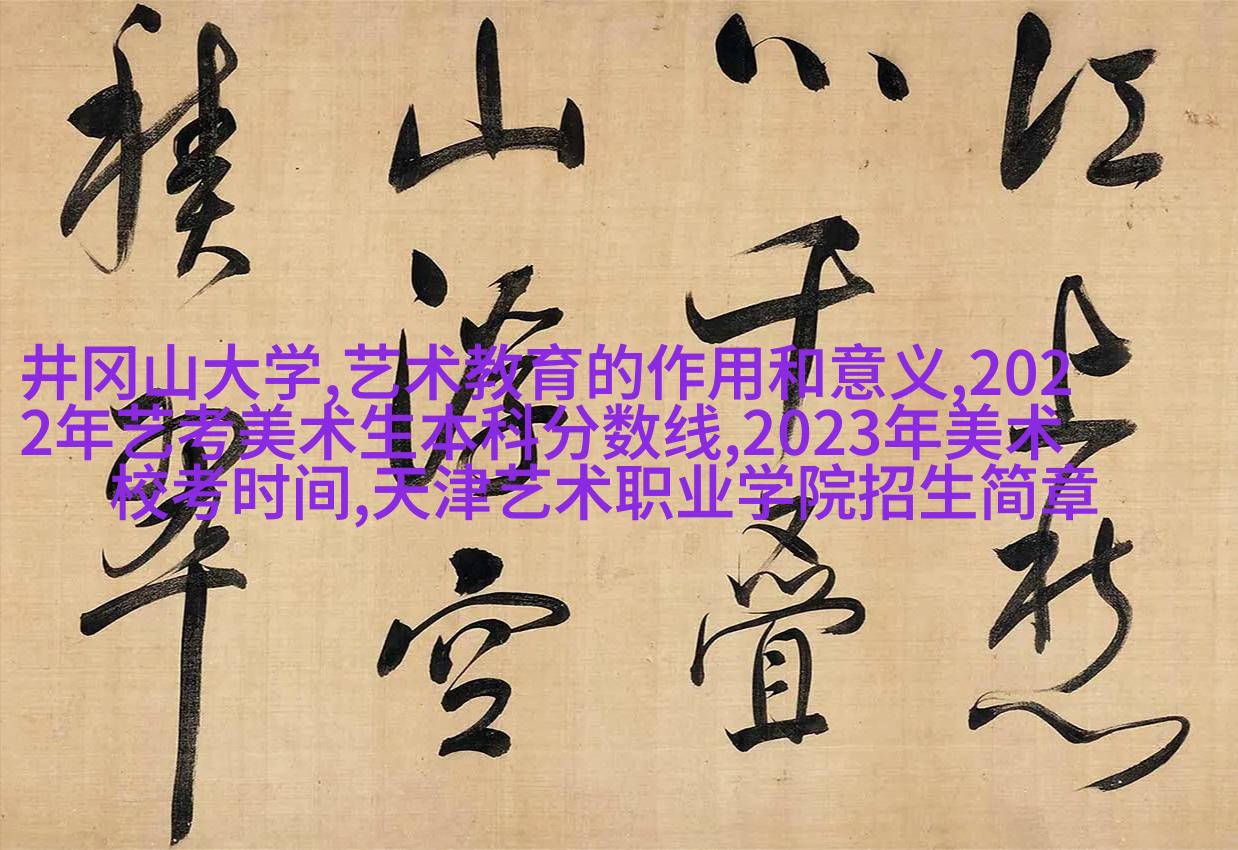 江上愁
心千叠
山浮空
積翠
井冈山大学,艺术教育的作用和意义,202
2年艺考美术生本科分数线,2023年美术
校考时间,天津艺术职业学院招生简章